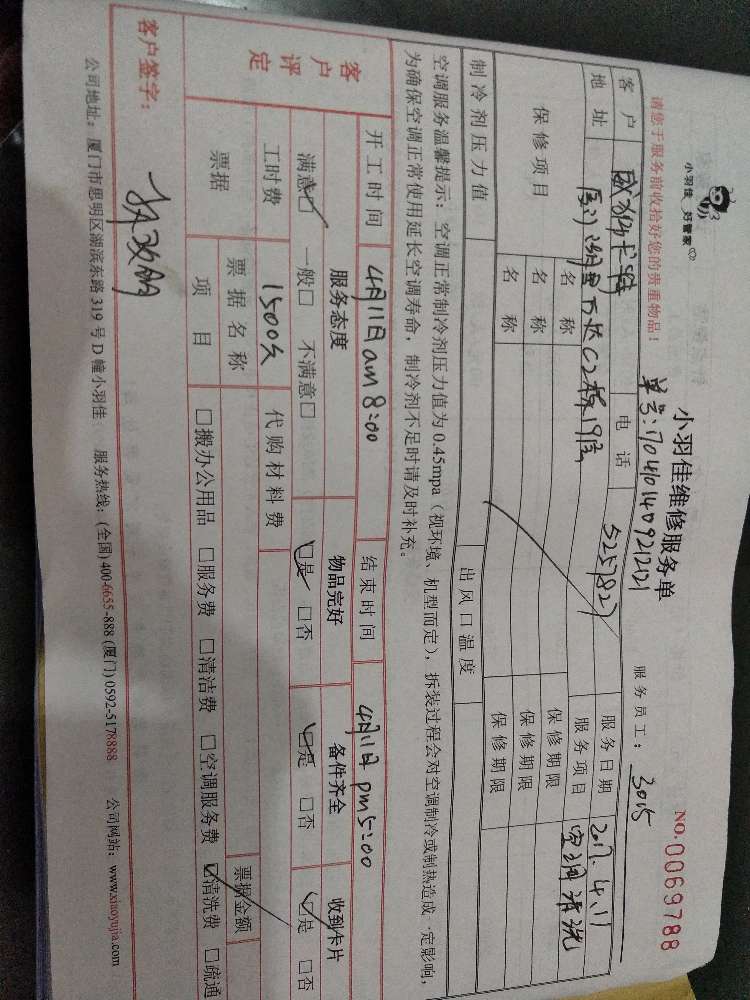 小羽佳 好管家
小羽佳维修服务单
NO.0069788
单号:1704101409212121
请您于服务前收拾好您的贵重物品！
服务员工：3015
客户 电话 5257827 服务日期 2017.4.11
地址 厦门湖里万达C2栋19层 服务项目 空调清洗
保修项目 名称 保修期限
名称 保修期限
名称 保修期限
制冷剂压力值 出风口温度
空调服务温馨提示：空调正常制冷剂压力值为0.45mpa（视环境、机型而定），拆装过程会对空调制冷或制热造成一定影响，
为确保空调正常使用延长空调寿命，制冷剂不足时请及时补充。
开工时间 4月11日am8:00 结束时间 4月11日pm5:00
客户评定 服务态度 物品完好 备件齐全 收到卡片
满意☑ 一般□ 不满意□ ☑是 □否 ☑是 □否 ☑是 □否
工时费 1500元 代购材料费
票据 票据名称 票据金额
项目 □搬办公用品 □服务费 □清洁费 □空调服务费 ☑清洗费 □疏通
客户签字：
公司地址：厦门市思明区湖滨东路319号D幢小羽佳 服务热线：(全国)400-6655-888 (厦门)0592-5178888 公司网站：www.xiaoyujia.com